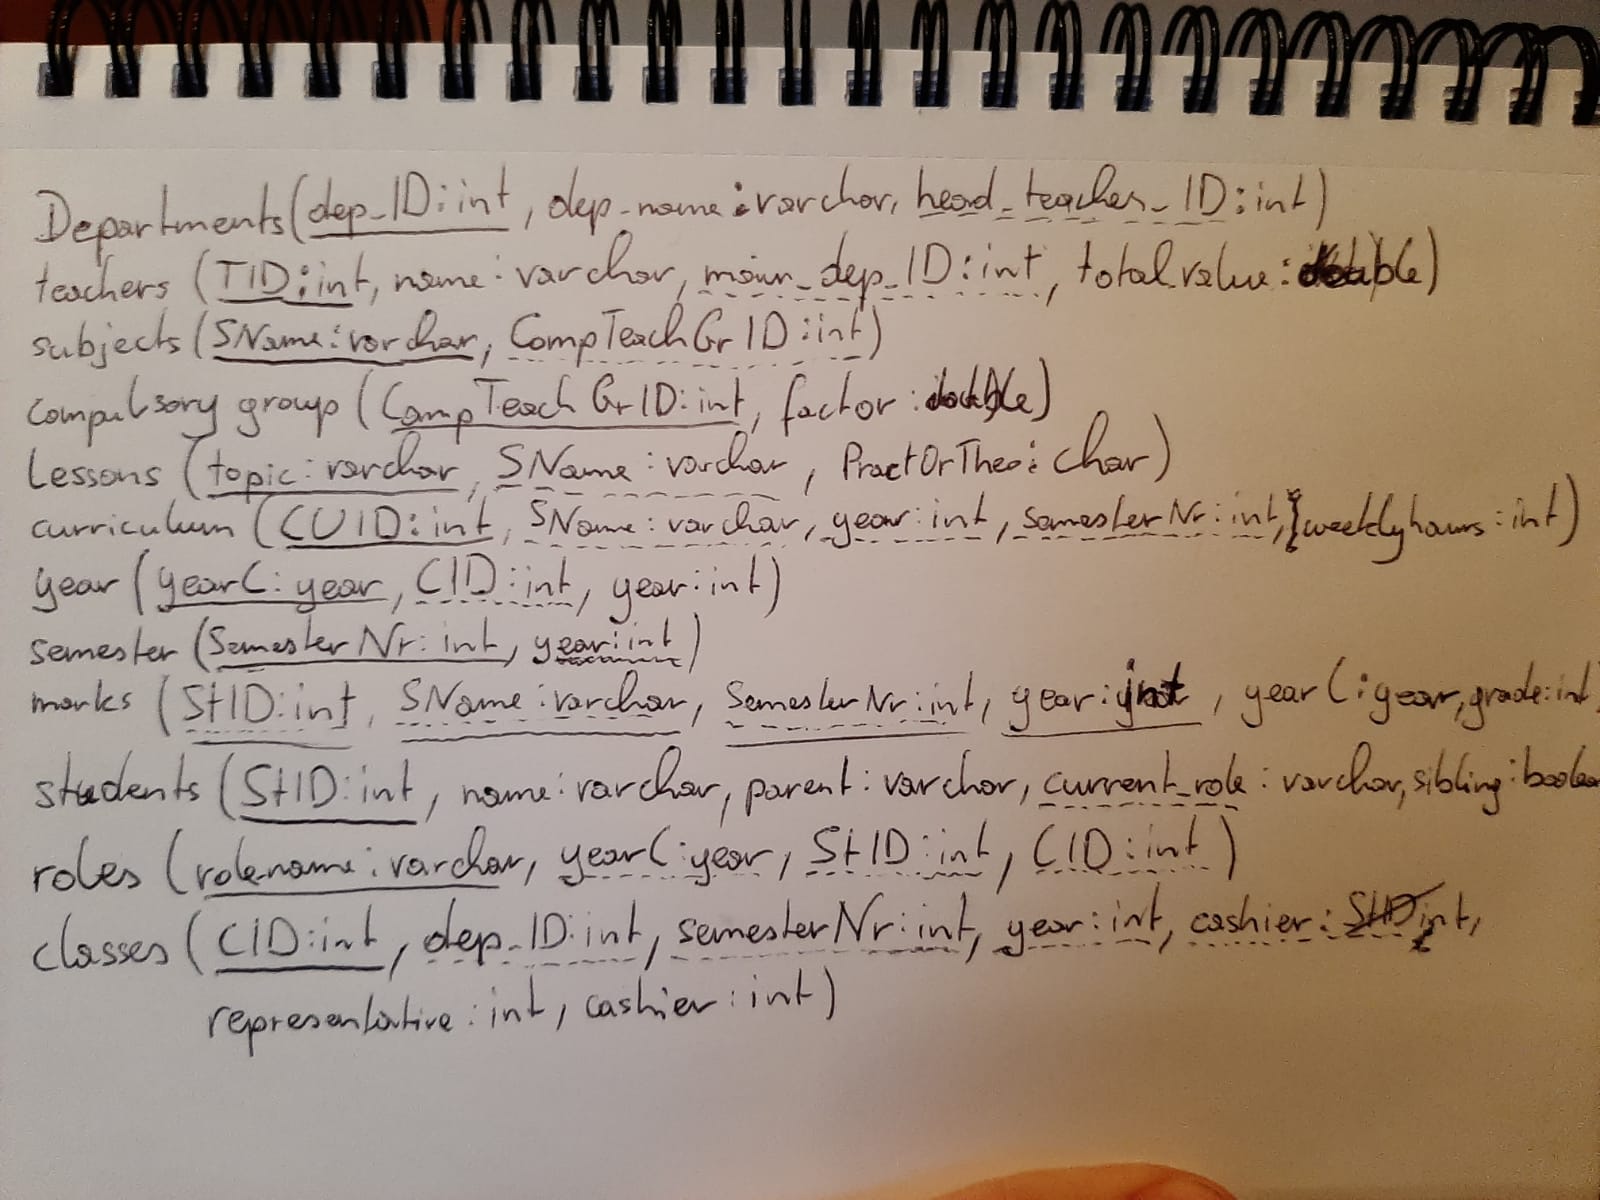 Departments(dep_ID:int, dep-name:varchar, head_teacher_ID:int)
teachers (TID:int, name:varchar, main_dep_ID:int, total.value:double)
subjects (SName:varchar, CompTeachGrID:int)
compulsory group (CompTeachGrID:int, factor:double)
Lessons (topic:varchar, SName:varchar, PractOrTheo:char)
curriculum (CUID:int, SName:varchar, year:int, semesterNr:int, weeklyhours:int)
year (yearC:year, CID:int, year:int)
semester (SemesterNr:int, year:int)
marks (StID:int, SName:varchar, SemesterNr:int, year:int, yearC:year, grade:int
students (StID:int, name:varchar, parent:varchar, current_role:varchar, sibling:boolea
roles (rolename:varchar, yearC:year, StID:int, CID:int)
classes (CID:int, dep_ID:int, semesterNr:int, year:int, cashier: int,
representative:int, cashier:int)